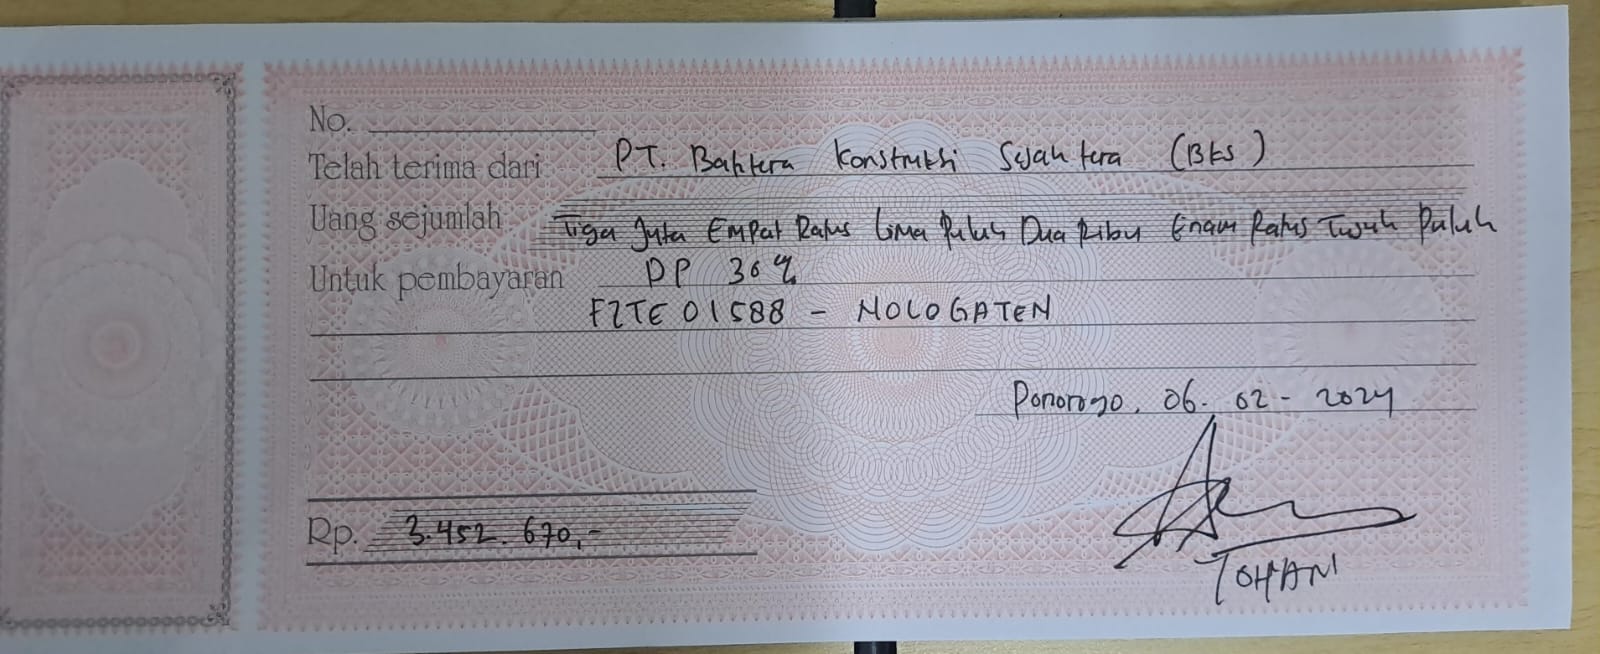 No.
Telah terima dari PT. Bahtera Konstruksi Sejahtera (BKS)
Uang sejumlah Tiga Juta Empat Ratus Lima Puluh Dua Ribu Enam Ratus Tujuh Puluh
Untuk pembayaran DP 30%
FZTE01588 - NOLOGATEN
Ponorogo, 06-02-2024
Rp. 3.452.670,-
TOHANI